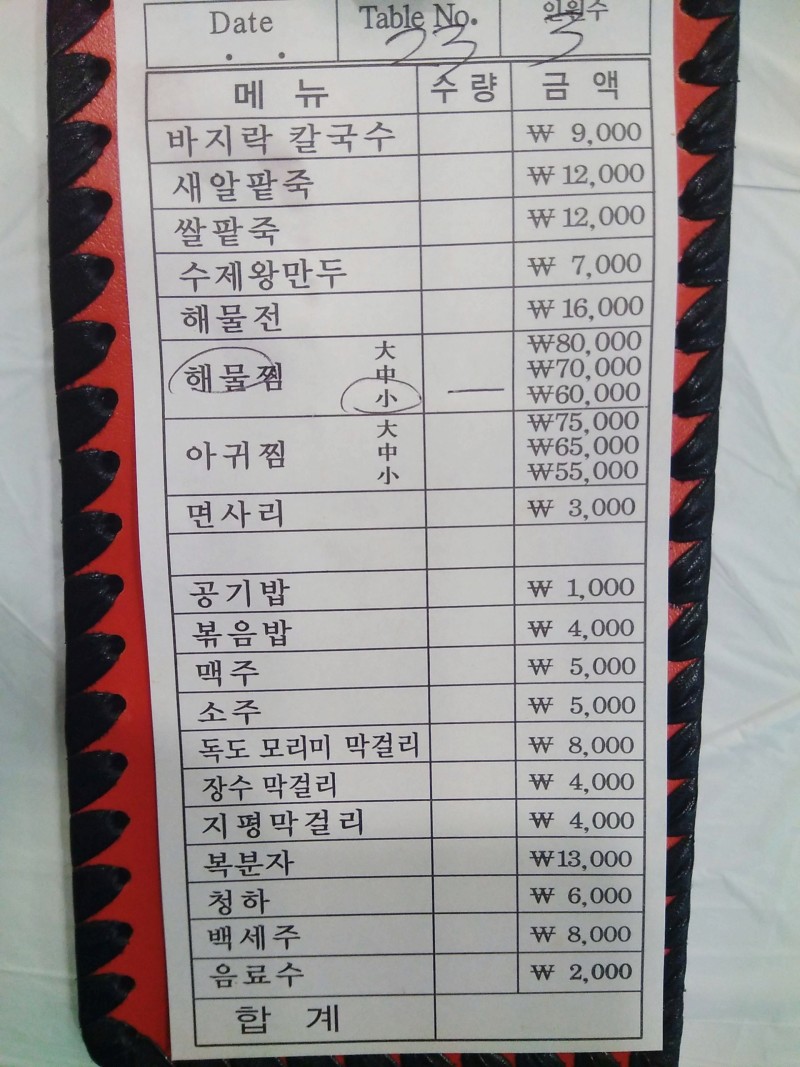 Date Table No. 인원수
. . 23 3
메 뉴 수 량 금 액
바지락 칼국수 ₩ 9,000
새알팥죽 ₩ 12,000
쌀팥죽 ₩ 12,000
수제왕만두 ₩ 7,000
해물전 ₩ 16,000
大 ₩80,000
해물찜 中 ₩70,000
小 — ₩60,000
大 ₩75,000
아귀찜 中 ₩65,000
小 ₩55,000
면사리 ₩ 3,000
공기밥 ₩ 1,000
볶음밥 ₩ 4,000
맥주 ₩ 5,000
소주 ₩ 5,000
독도 모리미 막걸리 ₩ 8,000
장수 막걸리 ₩ 4,000
지평막걸리 ₩ 4,000
복분자 ₩13,000
청하 ₩ 6,000
백세주 ₩ 8,000
음료수 ₩ 2,000
합 계